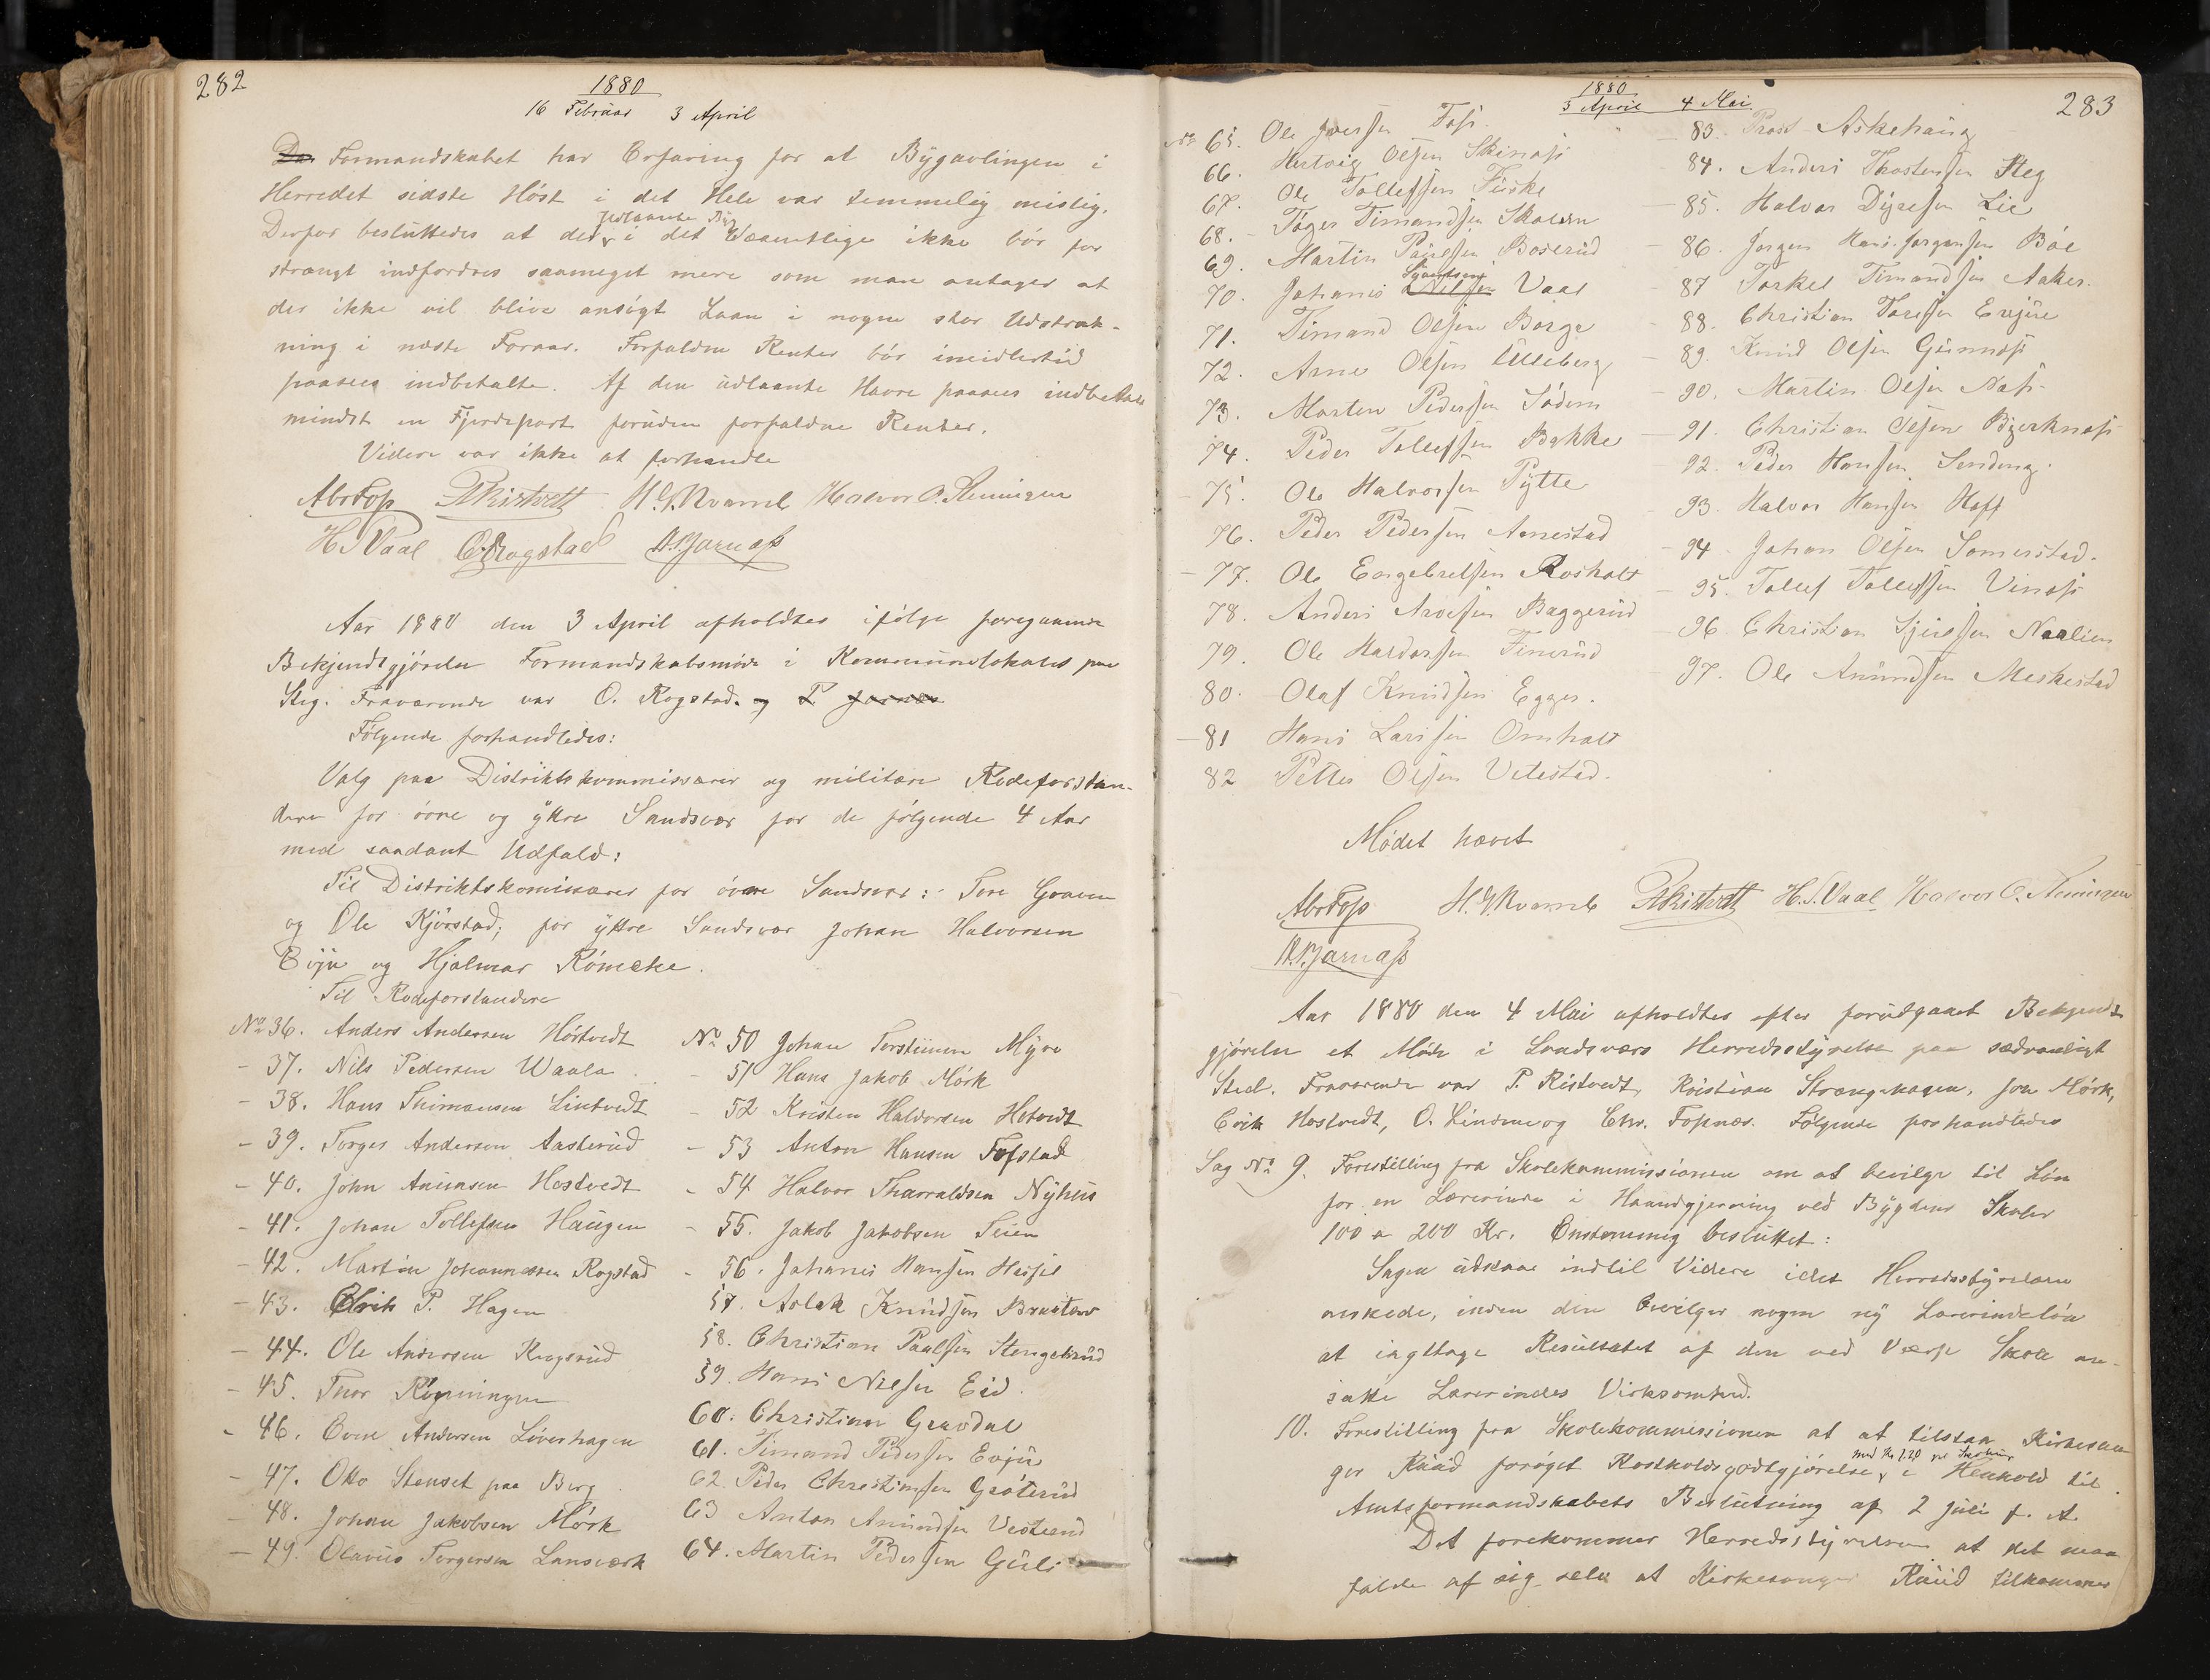 282
1880
16 Februar 3 April
Da Formandskabet har Erfaring for at Bygavlingen i
Herredet sidste Høst i det Hele var temmelig mislig.
Derfor besluttedes at det udlaante Byg i det Væsentlige ikke bör for
strængt indfordres saameget mere som man antager at
der ikke vil blive ansögt Laan i nogen stor Udstræk-
ning i næste Foraar. Forfaldne Renter bör imidlertid
paasees indbetalte. Af den udlaante Havre paasees indbetalt
mindst en Fjerdepart foruden forfaldne Renter.
Videre var ikke at forhandle
Abr Foss P Ristvedt H. G. Kvarnb Halvor O. Fleningen
H. J. Vaal O. Rogstad P. Jarnass
Aar 1880 den 3 April afholdtes ifölge foregaaende
Bekjendtgjörelse Formandskabsmöde i Kommunelokalet paa
Steg. Fraværende var O. Rogstad. og P. Jarnæs
Fölgende forhandledes:
Valg paa Distriktskommissærer og militære Rodeforstan-
dere for övre og ytre Sandsvær for de fölgende 4 Aar
med saadant Udfald:
Til Distriktskomissærer for övre Sandsvær: Tore Graven
og Ole Kjörstad; for yttre Sandsvær Johan Halvorsen
Evju og Hjalmar Römcke.
Til Rodeforstandere
No 36. Anders Andersen Höstvedt
- 37. Nils Pedersen Waala
- 38. Hans Thimansen Lintvedt
- 39. Torger Andersen Aasterud
- 40. John Amunsen Hostvedt
- 41. Johan Tollefsen Haugen
- 42. Martin Johannessen Rogstad
- 43. Erik P. Hagen
- 44. Ole Andersen Krogsrud
- 45. Thor Röpningen
- 46. Even Andersen Löverhagen
- 47. Otto Stenset paa Berg
48. Johan Jakobsen Mörk
- 49. Olavus Torgersen Lansværk
No 50 Johan Torstensen Myre
- 51 Hans Jakob Mörk
- 52 Kristen Halvorsen Hotvedt
- 53 Anton Hansen Fosstad
- 54 Halvor Tharaldsen Nyhus
- 55. Jakob Jakobsen Teien
- 56. Johanes Hansen Hassel
57. Aslak Knudsen Brusten
58. Christian Paulsen Stengelsrud
59. Hans Nilsen Eid.
60. Christian Gravdal
61. Timand Pedersen Evju
62. Peder Christiansen Gröterud
63 Anton Amundsen Vestrand
64. Martin Pedersen Guli
283
1880
3 April 4 Mai.
No 65. Ole Iversen Foss.
66. Hertvig Olsen Skinnæss
67. Ole Tollefsen Fiske
68. Tager Timandsen Skalien
69. Martin Paulssen Boserud
70. Johanes Nilsen Vaal
71. Timand Olsen Borge
72. Arne Olsen Ulleberg
73. Morten Pedersen Södem
74. Peder Tollefsen Bakke
75. Ole Halvorsen Pytte
76. Peder Pedersen Aanestad
- 77. Ole Engebretsen Rosholt
78. Anders Arvesen Baggerud
79. Ole Haldorsen Tinerud
80. Olaf Knudsen Egger.
- 81 Hans Larssen Omholt
82 Petter Olsen Vetestad.
83. Prost Askehaug
84. Anders Thorstensen Steg
85. Halvor Dyresen Lie
86. Jörgen Hans. Jörgensen Böe
87 Torkel Timandsen Aaker.
88. Christian Toresen Evju
89. Knud Olsen Gunnæss
90. Martin Olsen Næss
91. Christian Olsen Bjerknæss
92. Peder Hansen Sending.
93. Halvor Hansen Hoff
94 Johan Olsen Somerstad.
95. Tollef Tollefsen Vinæss
96. Christian Gjersen Naalien
97. Ole Amundsen Meskestad
Mödet hævet
Abr Foss H. G. Kvarnb P Ristvedt H. J. Vaal Halvor O. Fleningen
P. Jarnass
Aar 1880 den 4 Mai afholdtes efter forudgaaet Bekjendt-
gjörelse et Möde i Sandsværs Herredsstyrelse paa sædvanligt
Sted. Fraværende var P. Ristvedt, Kristian Strængehagen, Jon Mörk,
Erik Hostvedt, O. Lindsme og Chr. Fossnæs. Fölgende forhandledes
Sag No 9. Forestilling fra Skolekommissionen om at bevilge til Lön
for en Lærerinde i Haandgjerning ved Bygdens Skoler
100 a 200 Kr. Enstemmig besluttet:
Sagen udstaar indtil Videre idet Herredsstyrelsen
önskede, inden den bevilger nogen ny Lærerindelön
at iagttage Resultatet af den ved Værp Skole an-
satte Lærerindes Virksomhed.
10. Forestilling fra Skolekommissionen at at tilstaa Kirkesan-
ger Ruud foröget Kostholdsgodtgjörelse i Henhold til
Amtsformandskabets Beslutning af 2 Juli f. A.
Det forekommer Herredsstyrelsen at det maa
falde af sig selv at Kirkesanger Ruud tilkommer